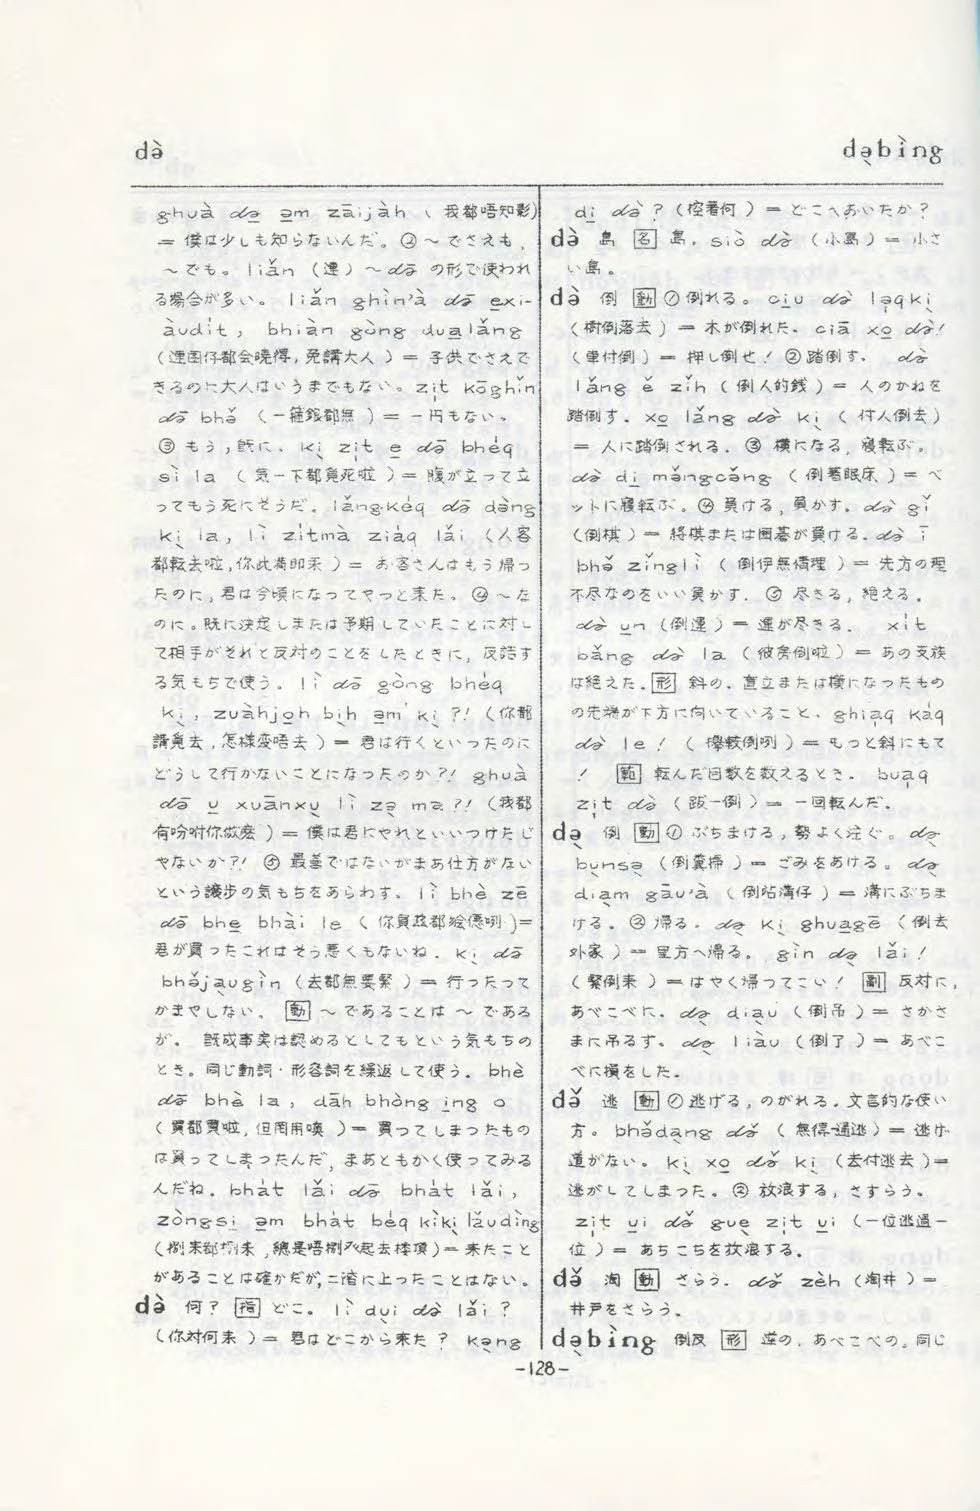 də̀
də̣bìng
ghuà də̱ ə̱m zāijàh (我都唔知影)
= 僕は少しも知らないんだ。②～でさえも,
～でも。liǎn (連) ～də̄ の形で使われ
る場合が多い。liǎn ghìn'à də̄ e̱xi-
àudit, bhiàn gòng dua̱lǎng
(連囡仔都会曉得,免講大人) = 子供でさえで
きるのに大人はいうまでもない。zi̍t kōghǐn
də̄ bhə̌ (一箍銀都無) = 一円もない。
③もう,既に。kị zi̍t e̱ də̄ bhéq
sì la (気一下都覓死啦) = 腹が立って立
ってもう死にそうだ。lǎngkéq də̄ dàng
kị la, lì zi̍tmà ziáq lǎi (人客
都転去啦,你此満即来) = お客さんはもう帰っ
たのに,君は今頃になってやっと来た。④～た
のに。既に決定しまたは予期していたことに対し
て相手がそれと反対のことをしたときに,反詰す
る気もちで使う。lì də̄ gòng bhéq
kị, zuàhjo̱h bịh ə̱m kị ?! (你都
講覓去,怎様変唔去) = 君は行くといったのに
どうして行かないことになったのか?! ghuà
də̄ u̱ xuānxụ lì zə̣ ma?! (我都
有吩咐你做麽) = 僕は君にやれといいつけたじ
やないか?! ⑤最善ではないがまあ仕方がない
という譲歩の気もちをあらわす。lì bhè zē
də̄ bhe̱ bhài le (你買玆都 咧)=
君が買ったこれはそう悪くもないね。kị də̄
bhə̌jạugìn (去都無要緊) = 行ったって
かまやしない。[動]～であることは～である
が。 既成事実は認めるとしてもという気もちの
とき。同じ動詞・形容詞を繰返して使う。bhè
də̄ bhè la, dāh bhòng i̱ng o
(買都買啦,但罔用喚) = 買ってしまったもの
は買ってしまったんだ,まあともかく使ってみる
んだね。bhat lǎi də̄ bhat lǎi,
zòngsị ə̱m bhat béq kìkị lǎudìng
(捌来都捌来,總是唔捌 起去楼頂) = 来たこと
があることは確かだが,二階に上ったことはない。
də̀ 何? [指] どこ。lì dụi də̀ lǎi ?
(你対何来) = 君はどこから来た? kə̣ng
di̱ də̀ ? (控着何) = どこへおいたか?
də̀ 島 [名] 島。siò də̀ (小島) = 小さ
い島。
də̀ 倒 [動] ①倒れる。ciu̱ də̀ lə̣qkị
(樹倒落去) = 木が倒れた。ciā xo̱ də̀!
(車付倒) = 押し倒せ! ②踏倒す。 də̀
lǎng ě zǐh (倒人的銭) = 人のかねを
踏倒す。xo̱ lǎng də̀ kị (付人倒去)
= 人に踏倒される。③横になる,寝転ぶ。
də̀ di̱ mǎngcǎng (倒著眠床) = ベ
ットに寝転ぶ。④負ける,負かす。də̀ gǐ
(倒棋) = 将棋または囲碁が負ける。də̀ ī
bhə̌ zǐnglì (倒伊無情理) = 先方の理
不尽なのをいい負かす。⑤尽きる,絶える。
də̀ un (倒運) = 運が尽きる。 xi̍t
bǎng də̀ la (彼房倒啦) = あの支族
は絶えた。[形] 斜の。直立または横になったもの
の先端が下方に向いていること。ghia̍q káq
də̀ le! (攑較倒咧) = もっと斜にもて
! [範] 転んだ回数を数えるとき。bua̍q
zi̍t də̀ (跋一倒) = 一回転んだ。
də̣ 倒 [動] ①ぶちまける,勢よく注ぐ。də̣
bụnsə̣ (倒糞掃) = ごみをあける。də̣
diạm gāu'à (倒坫溝仔) = 溝にぶちま
ける。②帰る。də̣ kị ghua̱gē (倒去
外家) = 里方へ帰る。gìn də̣ lǎi!
(緊倒来) = はやく帰ってこい! [副] 反対に,
あべこべに。də̣ diạu (倒吊) = さかさ
まに吊るす。də̣ liàu (倒了) = あべこ
べに損をした。
də̌ 逃 [動] ①逃げる,のがれる。文言的な使い
方。bhə̌dāng də̌ (無得通逃) = 逃げ
道がない。kị xo̱ də̌ kị (去付逃去)=
逃がしてしまった。②放浪する,さすらう。
zi̍t u̱i də̌ gụe zi̍t u̱i (一位逃過一
位) = あちこちを放浪する。
də̌ 淘 [動] さらう。də̌ zèh (淘井) =
井戸をさらう。
də̣bìng 倒反 [形] 逆の,あべこべの。同じ
-128-